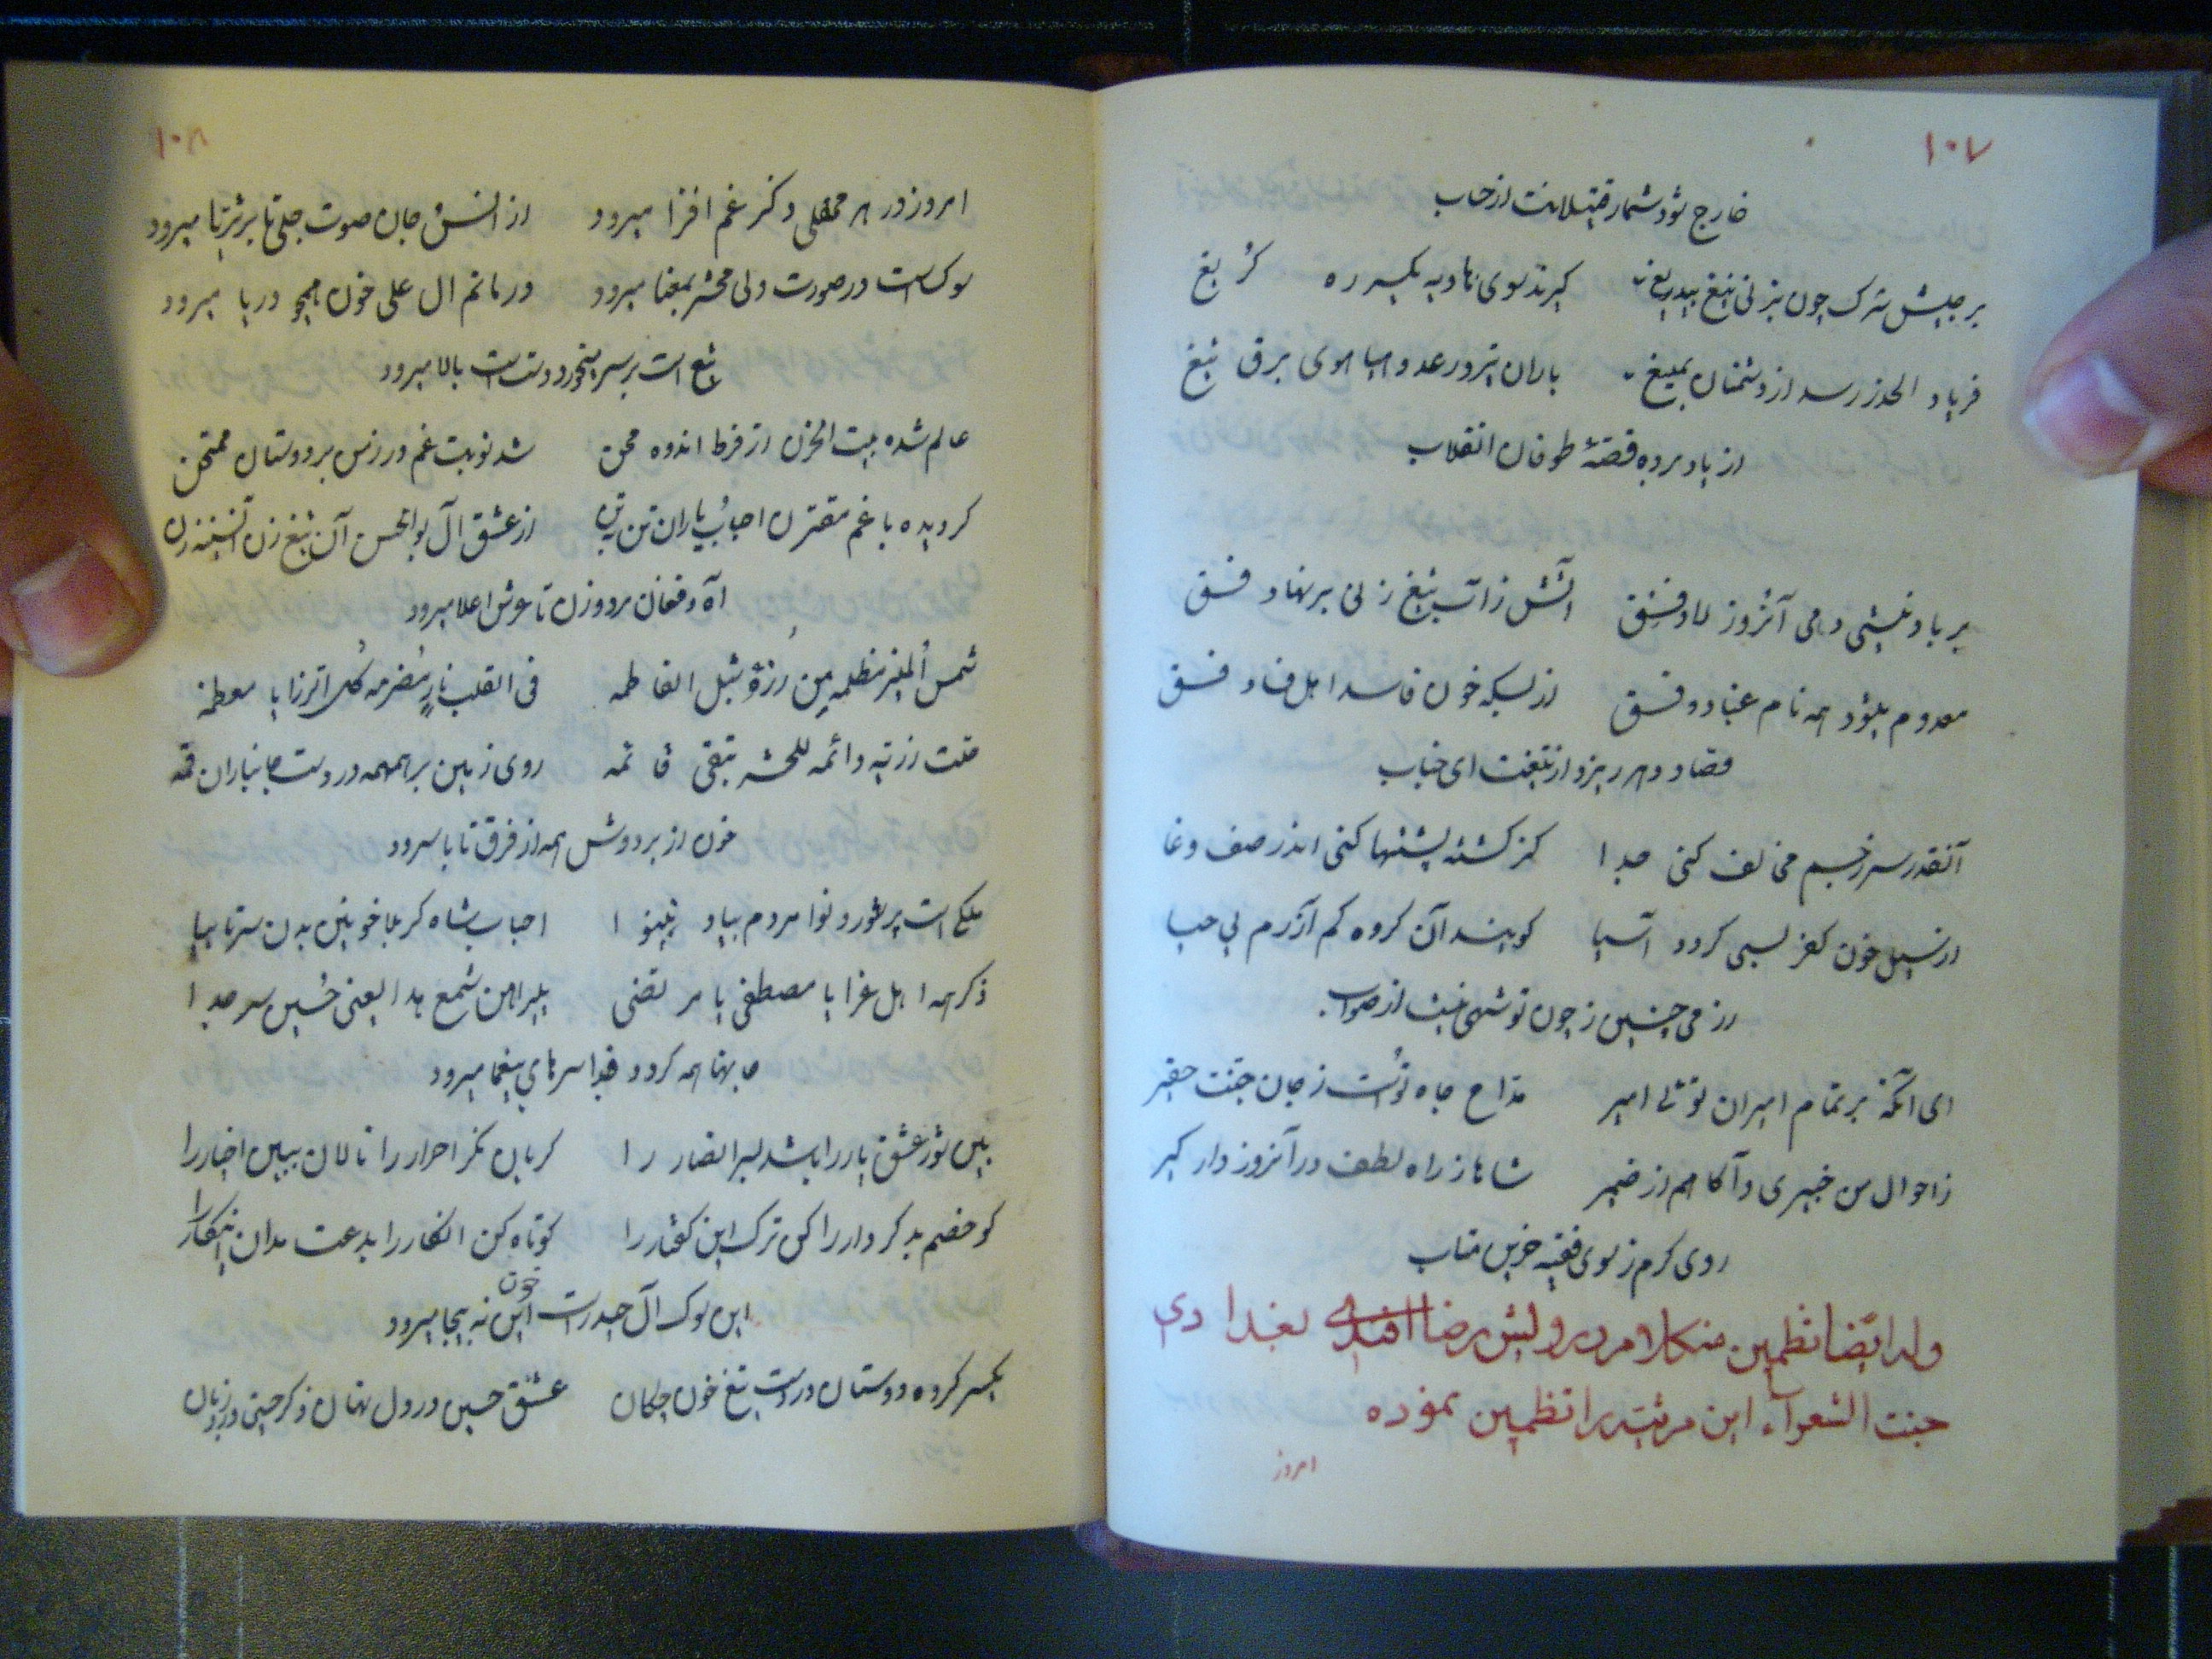 ١٠٧
خارج شود شمار قتیلانت از حساب
بر جیش شرک چون بزنی تیغ بیدریغ گیرند سوی هاویه یکسر ره گریغ
فریاد الحذر رسد از دشمنان بمیغ باران تیر و رعد و هیاهوی برق تیغ
از یاد برده قصهٔ طوفان انقلاب
بر باد آنروز فسق آتش ز آب تیغ زنی بر نهاد فسق
معدوم میشود همه نام عناد و فسق از بسکه خون فاسد اهل فساد و فسق
فصاد دهر ریزد از تیغت ای جناب
آنقدر سر ز جسم مخالف کنی جدا کز کشته پشتها کنی اندر صف وغا
از سیل خون کفر بسی گردد آسیا گویند آن گروه کم آزرم بی حیا
رزمی چنین ز چون تو شهی نیست از صواب
ای آنکه بر تمام امیران توئی امیر مداح جاه توست ز جان جنت حقیر
ز احوال من خبیری و آگاهم از ضمیر شاها ز راه لطف در آنروز دار گیر
روی کرم ز سوی فقیر حزین متاب
وله ایضا تظمین من کلام درویش رضا افندی بغدادی
جنت الشعرآء این مرثیه را تظمین نموده
امروز
١٠٨
امروز در هر محفلی ذکر غم افزا میرود از انس و جان صوت جلی تا بر ثریا میرود
سوک است در صورت ولی محشر بمعنا میرود در ماتم ال علی خون همچو دریا میرود
تیغ است بر سر میخورد دست است بالا میرود
عالم شده بیت الحزن از فرط اندوه محن شد نوبت غم ور زمن بر دوستان ممتحن
گردیده با غم مقترن احباب یاران تن بتن از عشق آل بو الحسن آن تیغ زن این سینه زن
آه و فغان مرد و زن تا عرش اعلا میرود
شمس المنیر مظلمه من رزؤ شبل الفاطمه فی القلب نار مضرمه کل الرزایا معظمه
رزیته دائمه للحشر تبقی قائمه روی زمین پر همهمه در دست جانبازان قمه
خون از بر و دوش همه از فرق تا پا میرود
ملکی است پر شور و نوا مردم بیاد نینوا احباب شاه کربلا خونین بدن سر تا بپا
ذکر همه اهل عزا یا مصطفی یا مرتضی پیرامن شمع هدا یعنی حسین سر جدا
جانها همه گردد فدا سرها بیغما میرود
بین شور عشق یار را باشد بسر انصار را گریان نگر احرار را نالان ببین اخیار را
کو خصم بد کردار را کی ترک این گفتار را کوتاه کن انکار را بدعت مدان اینکار را
این سوک آل حیدر است این خون نه بیجا میرود
یکسر گروه دوستان در دست تیغ خون چکان عشق حسین در دل نهان ذکر حسین ورد زبان